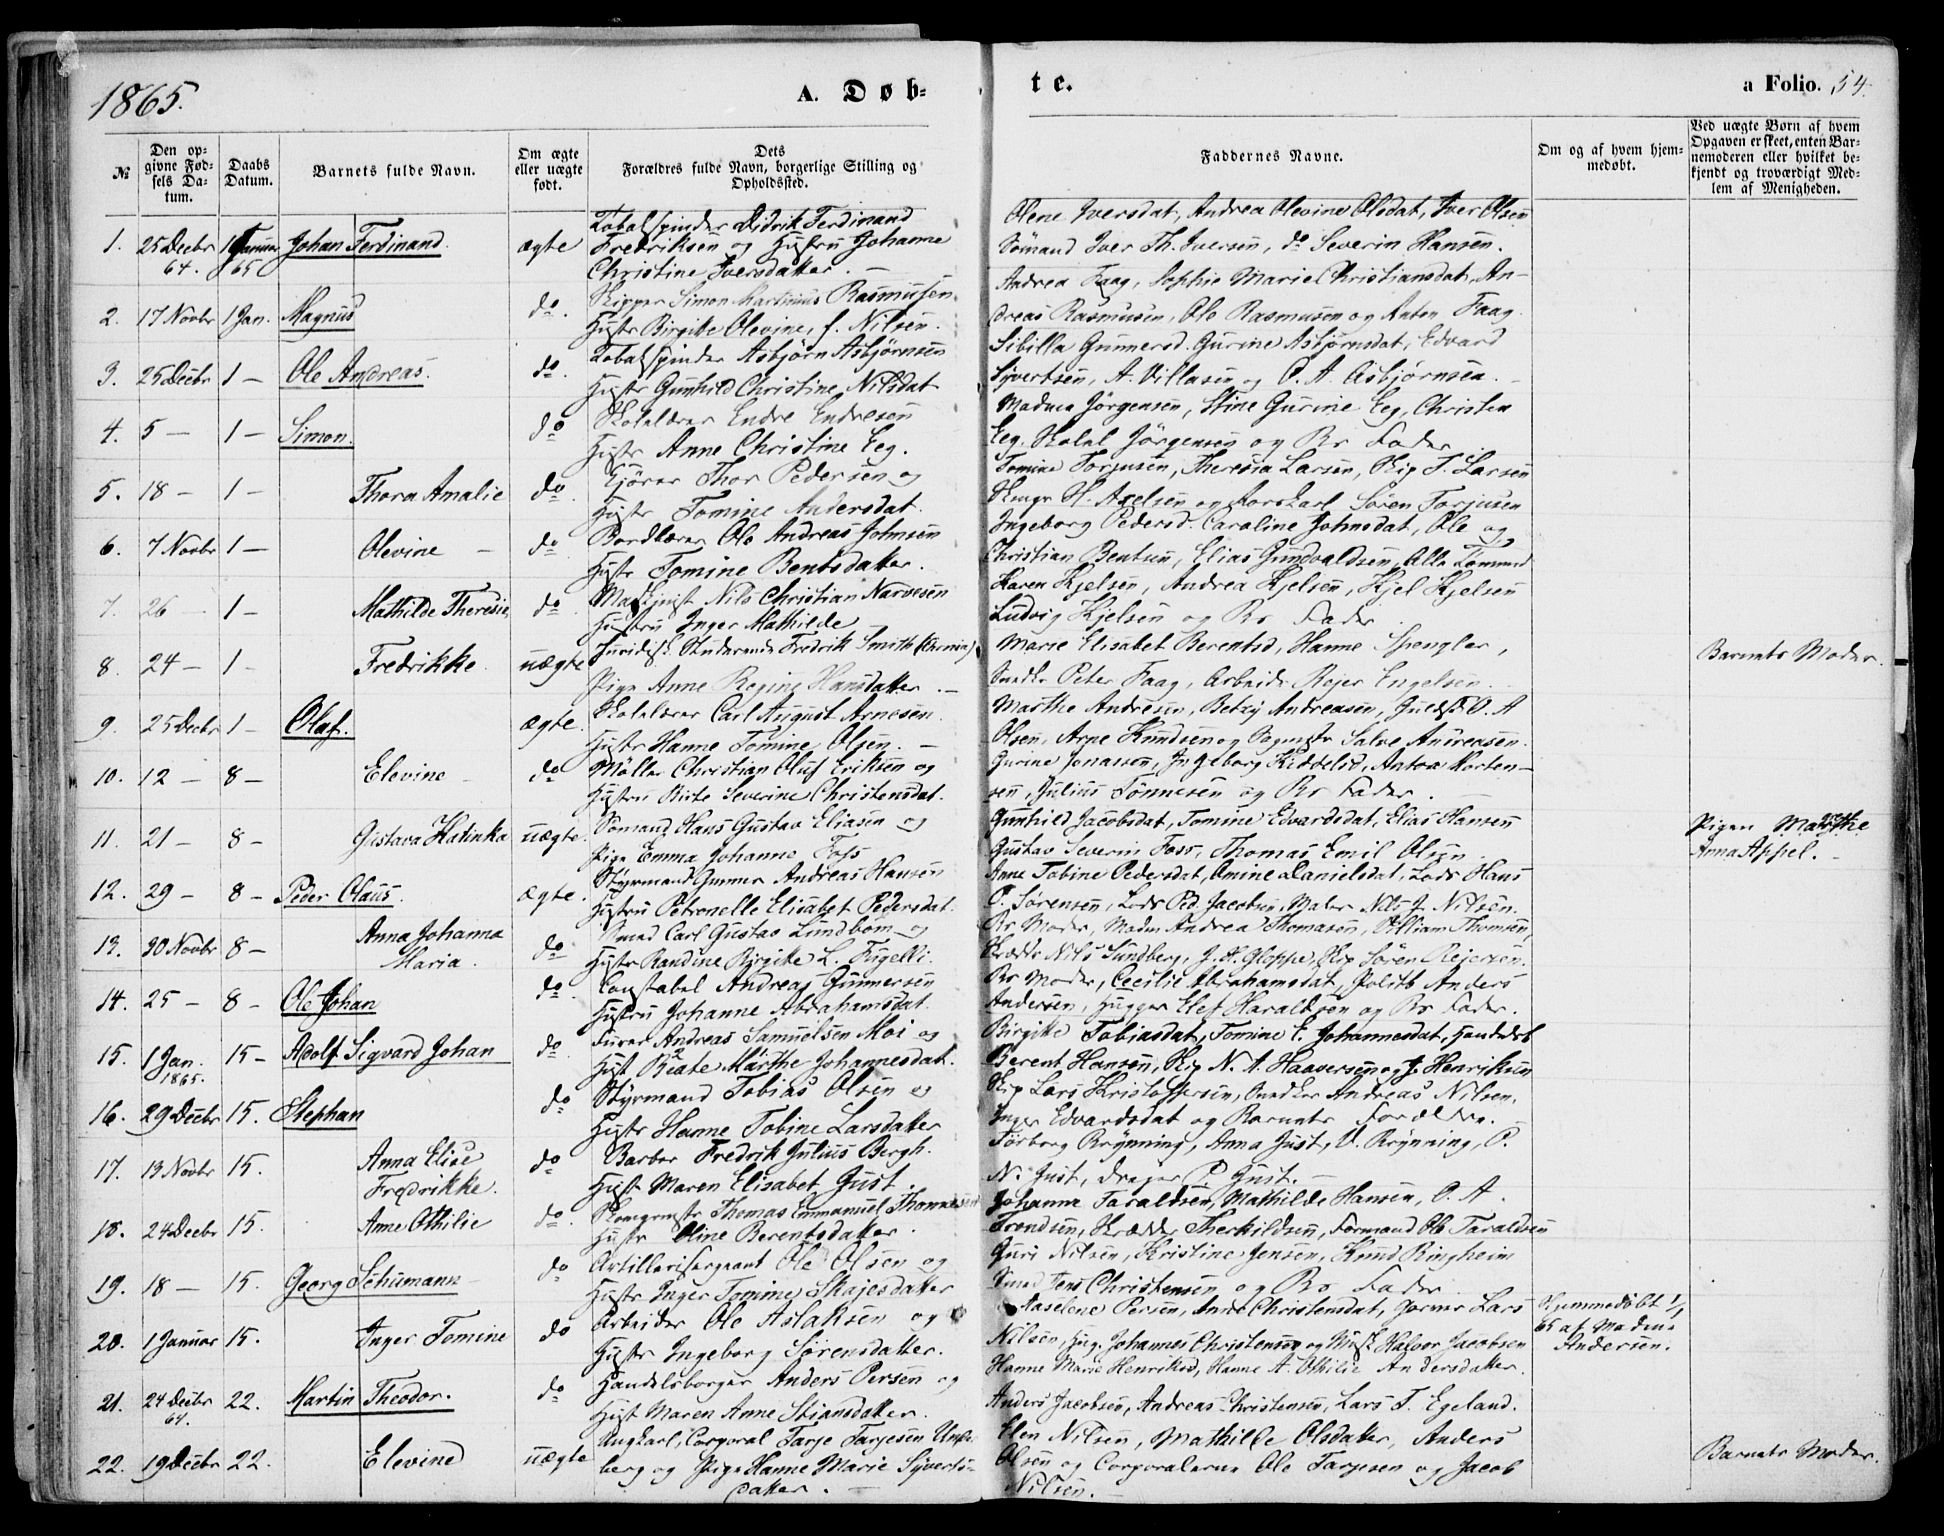 1865.
A. Døb-
te.
a Folio. 54.
№
Den op-
givne Fød-
sels Da-
tum.
Daabs
Datum.
Barnets fulde Navn.
Om ægte
eller uægte
født.
Dets
Forældres fulde Navn, borgerlige Stilling og
Opholdssted.
Faddernes Navne.
Om og af hvem hjem-
medøbt.
Ved uægte Børn af hvem
Opgaven er skeet, enten Bar-
nemoderen eller hvilket be-
kjendt og troværdigt Med-
lem af Menigheden.
1. 25 Decbr 64. 1 Januar 65 Johan Ferdinand. ægte
Tobakspinder Didrik Ferdinand
Fredriksen og Hustru Johanne
Christine Iversdatter. —
Olene Iversdat, Andrea Olevine Olsdat, Iver Olsen
Sömand Iver Th. Iversen, do Severin Hansen.
2. 17 Novbr 1 Jan. Magnus do.
Skipper Simon Martinius Rasmusen
Hustr Birgitte Olevine, f. Nilsen.
Andrea Faag, Sophie Marie Christiansdat, An-
dreas Rasmusen, Ole Rasmusen og Anton Faag.
3. 25 Decbr 1 — Ole Andreas. do.
Tobakspinder Asbjörn Asbjörnsen
Hustr Gunhild Christine Nilsdat
Sibilla Gunnersd. Gurine Asbjørnsdat, Edvard
Syvertsen, A. Villasen og O. A. Asbjørnsen. —
4. 5 — 1 — Simon. do
Skolelærer Endre Endresen
Hustr Anne Christine Eeg.
Madm Jörgensen, Stine Gurine Eeg, Christen
Eeg, Skolel Jörgensen og Bs Fader.
5. 18 — 1 — Thora Amalie do.
Kjörer Thor Pedersen og
Hustr Tomine Andersdat.
Tomine Torjusen, Theresia Larsen, Skip T. Larsen
H. Axelsen og Sören Torjusen
6. 7 Novbr 1 — Olevine — do
Bordlærer Ole Andreas Johnsen
Hustr Tomine Bentsdatter.
Ingeborg Pedersd. Caroline Johnsdat, Ole og
Christian Bentsen, Elias Gundvaldsen, Alle Tömmerm
7. 26 — 1 — Mathilde Theresie, do
Maskinist Nils Christian Narvesen
Hustru Inger Mathilde —
Karen Kjelsen, Andrea Kjelsen, Kjel Kjelsen
Ludvig Kjelsen og Bs Fader.
8. 24 — 1 — Fredrikke uægte
Juridisk Studerende Fredrik Smith
Pige Anne Regine Hansdatter. —
Marie Elisabet Berentsd, Hanne Spengler,
Snedk Peter Faag, Arbeids Rejer Engelsen.
Barnets Moder.
9. 25 Decbr 1 — Olaf. ægte.
Skolelærer Carl August Arnesen
Hustr Hanne Tomine Olsen. —
Marthe Andresen, Betzy Andreasen, Guldsm O. A
Olsen, Arne Knudsen og Salve Andreasen.
10. 12 — 8 — Elevine — do
Möller Christian Oluf Eriksen og
Hustru Birte Severine Christensdat.
Gurine Jonassen, Ingeborg Kiddelsd, Anton Morten-
sen, Julius Tönnesen og Bs Fader.
11. 21 — 8 — Gustava Katinka uægte.
Sömand Hans Gustav Eliasen og
Pige Emma Johanne Foss
Gunhild Jacobsdat, Tomine Edvardsdat, Elias Hansen
Gustav Severin Foss, Thomas Emil Olsen
Pigen Marthe
Anna Appel. —
12. 29 — 8 — Peder Claus. ægte.
Styrmand Gunner Andreas Hansen
Hustru Petronelle Elisabet Pedersdat.
Anne Tobine Pedersdat, Omine Danielsdat, Lods Hans
P. Sörensen, Lods Ped. Jacobsen, Maler Nils J. Nilsen.
13. 30 Novbr 8 — Anna Johanna
Maria. do
Smed Carl Gustav Lundbom og
Hustr Randine Birgitte L. Fugelli.
Bs Moder, Madm Andrea Thomasen, William Thomsen,
Skrædr Nils Sundberg, J. H. Gleppe, Skip Sören Rejersen.
14. 25 — 8 — Ole Johan do.
Constabel Andreas Gunnersen
Hustru Johanne Abrahamsdat.
Bs Moder, Cecilie Abrahamsdat, Politb Anders
Andersen, Hugger Elef Haraldsen og Bs Fader.
15. 1 Jan. 1865. 15 — Adolf Sigvard Johan do.
Furer Andreas Samuelsen Moi og
Hust Beate Marthe Johannesdat.
Birgitte Tobiasdat, Tomine E. Johannesdat, Handelsb
Berent Hansen, Skip N. A. Haaversen og J. Henriksen
16. 29 Decbr 15. Stephan do
Styrmand Tobias Olsen og
Hustr Hanne Tobine Larsdatter
Skip Lars Kristoffersen, Snedker Andreas Nilsen.
Inger Edvardsdat og Barnets Forældre.
17. 13 Novbr 15. Anna Elise
Fredrikke. do
Barber Fredrik Julius Bergh.
Hustr Maren Elisabet Just.
Törborg Brynning, Anna Just, O. Brynning, P.
N. Just, Drejer P. Just. —
18. 24 Decbr 15. Anne Othilie do.
Skomagmstr Thomas Emmanuel Thommesen
Hustr Oline Berentsdatter.
Johanna Taraldsen, Mathilde Hansen, O. A.
Trondsen, Skrædd Therkildsen, Formand Ole Taraldsen
19. 18 — 15. Georg Schumann — do
Artillerisergeant Ole Olsen og
Hustr Inger Tomine Skajesdatter
Guri Nilsen, Kristine Jensen, Knud Ringheim
Smed Jens Christensen og Bs Fader.
20. 1 Januar 15. Inger Tomine do
Arbeider Ole Aslaksen og
Hustr Ingeborg Sørensdatter.
Aaselene Persen, Anne Christensdat, Garver Lars
Nilsen, Hug. Johannes Christensen og Must Halvor Jacobsen
Hjemmedøbt 1/1
65 af Madm
Andersen.
21. 24 Decbr 64. 22. Martin Theodor. do
Handelsborger Anders Persen og
Hust Maren Anne Stiansdatter.
Hanne Marie Henriksd, Hanne A. Othilie Andersdatter.
Anders Jacobsen, Andreas Christensen, Lars T. Egeland.
22. 19 Decbr 22. Elevine uægte
Ungkarl, Corporal Tarje Tarjesen Unse-
berg og Pige Hanne Marie Syverts-
datter. —
Elen Nilsen, Mathilde Olsdatter, Anders
Olsen og Corporalerne Ole Tarjesen og Jacob
Nilsen. —
Barnets Moder.